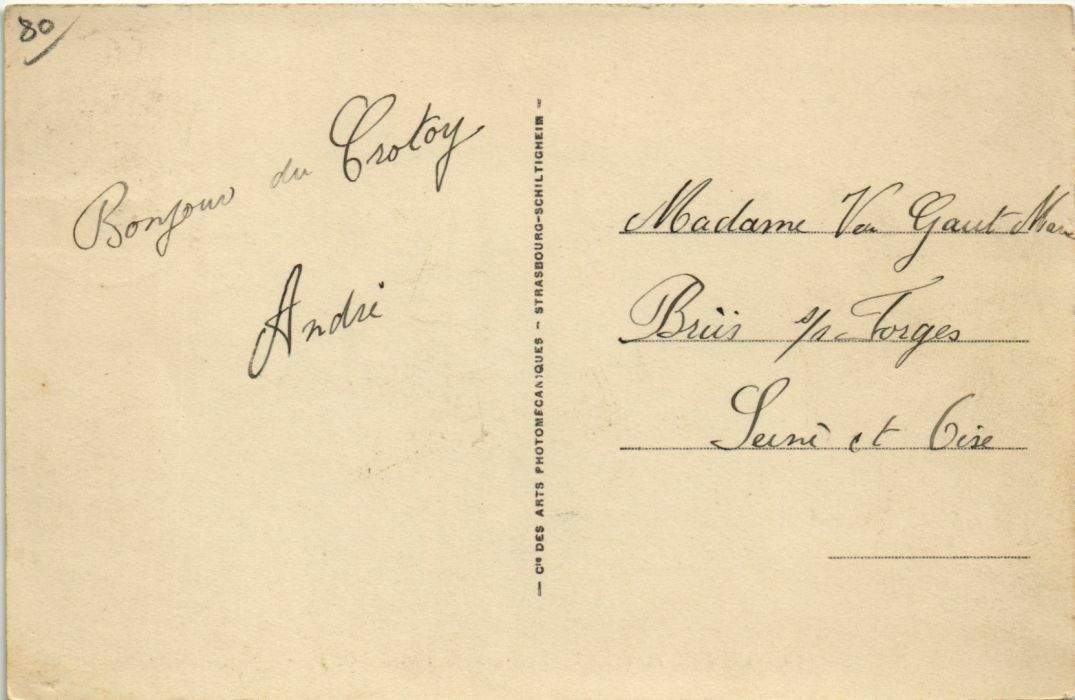 80
Bonjour du Crotoy
André
— Cie DES ARTS PHOTOMÉCANIQUES – STRASBOURG-SCHILTIGHEIM –
Madame Van Gaut
Briis s/s Forges
Seine et Oise